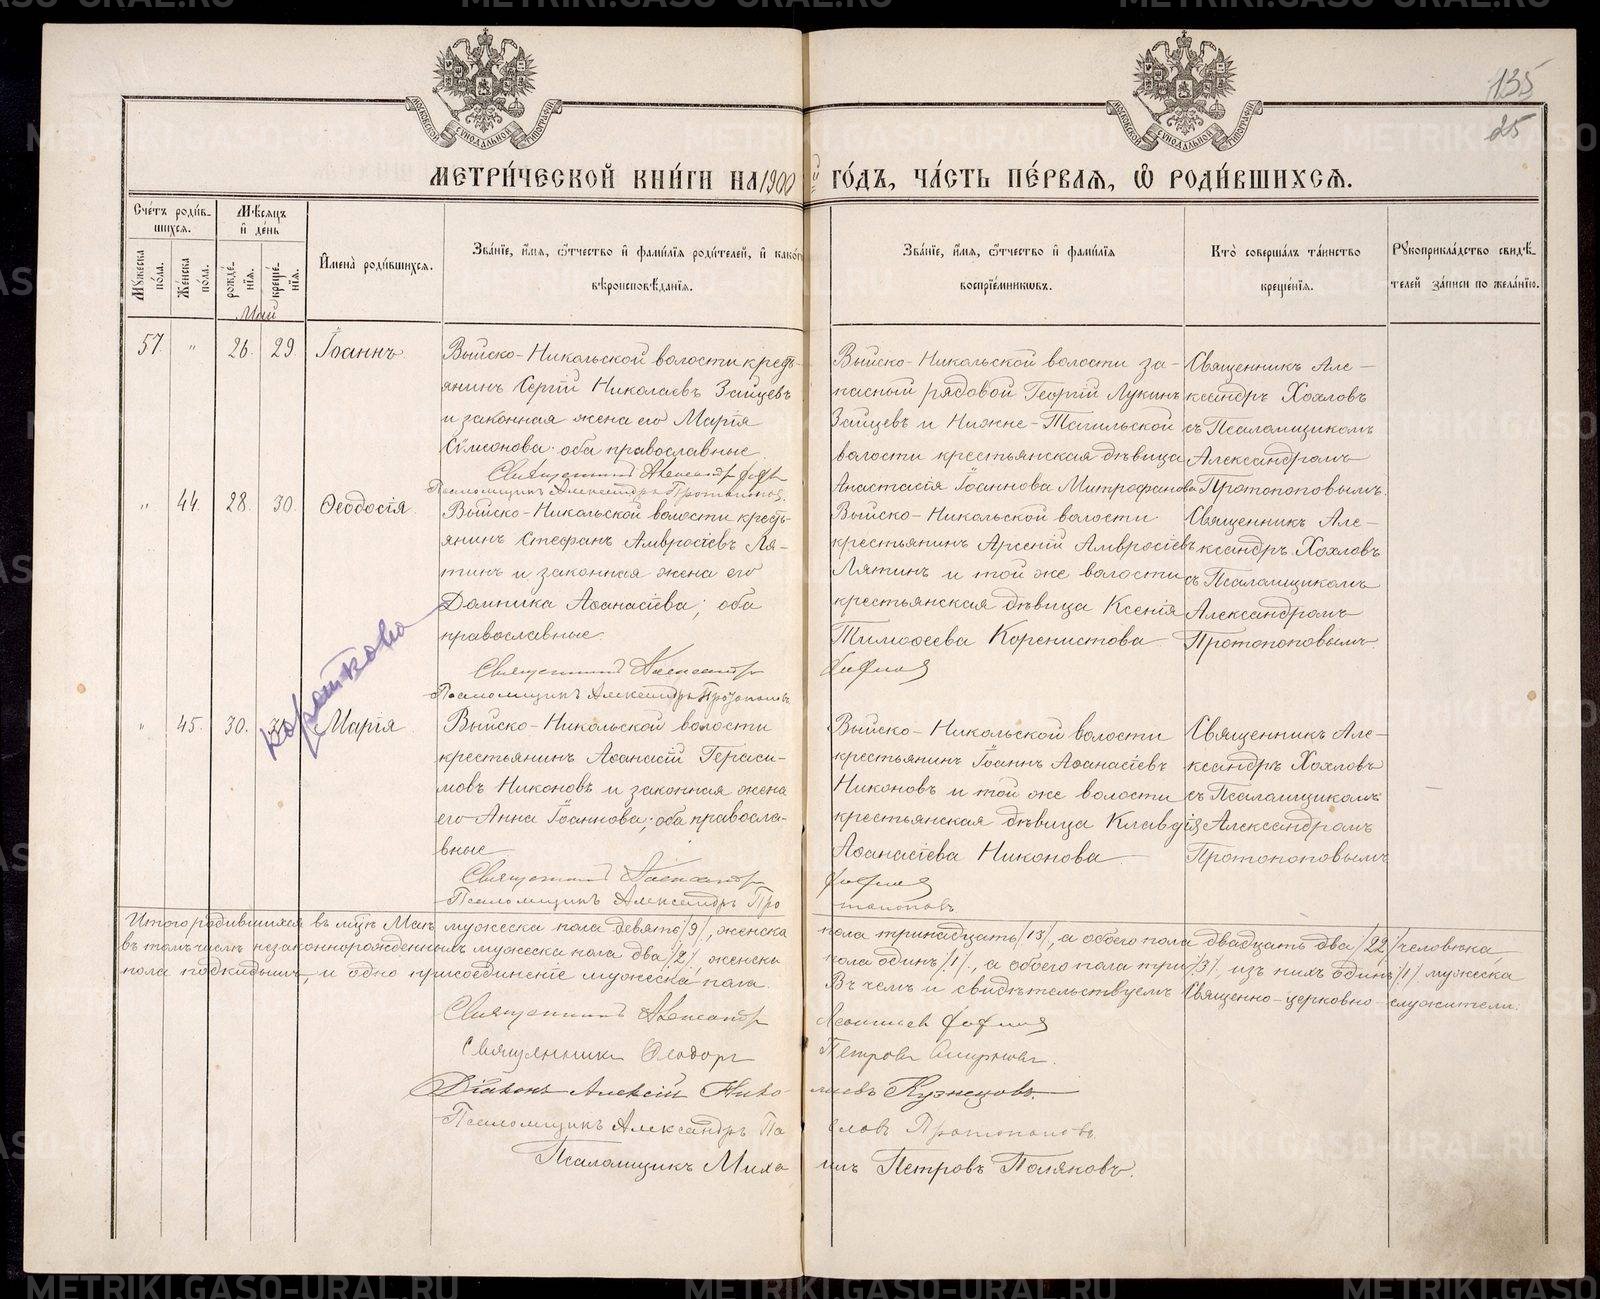 135
25
МЕТРИ́ЧЕСКОЙ КНИ́ГИ НА 1900 й ГО́ДЪ, ЧА́СТЬ ПЕ́РВАѦ, Ѽ РОДИ́ВШИХСѦ.
Сче́тъ роди́в-
шихсѧ.
Мꙋжеска по́ла.
Же́нска по́ла.
Мѣ́сѧцъ
и҆ де́нь
рожде́-
нїѧ.
креще́-
нїѧ.
И҆мена̀ роди́вшихсѧ.
Зва́нїе, и҆́мѧ, ѻ҆́тчество и҆ фами́лїѧ роди́телей, и҆ како́гѡ
вѣроисповѣ́данїѧ.
Зва́нїе, и҆́мѧ, ѻ҆́тчество и҆ фами́лїѧ
воспрїе́мникѡвъ.
Кто̀ соверша́лъ та́инство
креще́нїѧ.
Рꙋкоприкла́дство свидѣ́-
телей за́писи по жела́нїю.
Май
57. " 26. 29. Іоаннъ.
Выйско-Никольской волости кресть-
янинъ Сергій Николаевъ Зайцевъ
и законная жена его Марія
Сѵмеонова; оба православные.
Священникъ Александръ
Псаломщикъ Александръ Протопоповъ.
Выйско-Никольской волости за-
пасный рядовой Георгій Лукинъ
Зайцевъ и Нижне-Тагильской
волости крестьянская дѣвица
Анастасія Іоаннова Митрофанова
Священникъ Але-
ксандръ Хохловъ
съ Псаломщикомъ
Александромъ
Протопоповымъ.
" 44. 28. 30. Ѳеодосія.
Выйско-Никольской волости кресть-
янинъ Стефанъ Амвросіевъ Ля-
пинъ и законная жена его
Домника Аѳанасіева; оба
православные.
Священникъ Александръ
Псаломщикъ Александръ Протопоповъ
Выйско-Никольской волости
крестьянинъ Арсеній Амвросіевъ
Ляпинъ и той же волости
крестьянская дѣвица Ксенія
Тимоѳеева Коренистова
Священникъ Але-
ксандръ Хохловъ
съ Псаломщикомъ
Александромъ
Протопоповымъ.
Короткова
" 45. 30. 31. Марія
Выйско-Никольской волости
крестьянинъ Аѳанасій Гераси-
мовъ Никоновъ и законная жена
его Анна Іоаннова; оба правосла-
вные.
Священникъ Александръ
Псаломщикъ Александръ Про
топоповъ
Выйско-Никольской волости
крестьянинъ Іоаннъ Аѳанасіевъ
Никоновъ и той же волости
крестьянская дѣвица Клавдія
Аѳанасіева Никонова.
Священникъ Але-
ксандръ Хохловъ
съ Псаломщикомъ
Александромъ
Протопоповымъ
Итого родившихся въ м҃цѣ Маѣ мужеска пола девять /9/, женска пола тринадцать /13/, а обоего пола двадцать два /22/ человѣка,
въ томъ числѣ незаконнорожденныхъ мужеска пола два /2/, женска пола одинъ /1/, а обоего пола три /3/, изъ нихъ одинъ /1/ мужеска
пола подкидышъ, и одно присоединеніе мужеска пола. Въ чемъ и свидѣтельствуемъ Священно-церковно-служители:
Священникъ Александръ Леонтіев
Священникъ Ѳеодоръ Петровъ Смирновъ.
Діаконъ Алексій Николаевъ Кузнецовъ.
Псаломщикъ Александръ Павловъ Протопоповъ
Псаломщикъ Михаилъ Петровъ Поляковъ.
METRIKI.GASO-URAL.RU